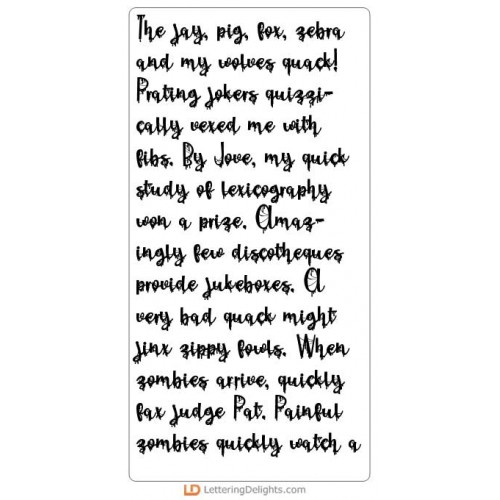 The jay, pig, fox, zebra
and my wolves quack!
Prating jokers quizzi-
cally vexed me with
fibs. By Jove, my quick
study of lexicography
won a prize. Amaz-
ingly few discotheques
provide jukeboxes. A
very bad quack might
jinx zippy fowls. When
zombies arrive, quickly
fax Judge Pat. Painful
zombies quickly watch a
LD LetteringDelights.com